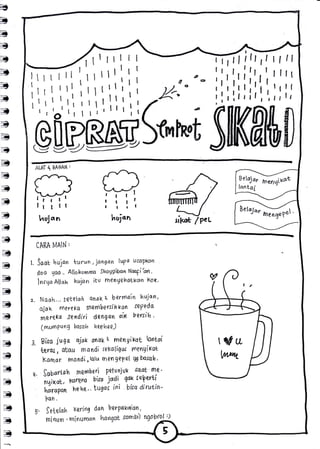 CIPRAT SEMPROT SIKAT!
ALAT & BAHAN :
hujan
hujan
sikat / pel
Belajar menyikat
lantai
Belajar mengepel.
CARA MAIN :
1. Saat hujan turun, jangan lupa ucapkan
doa yaa. Allahumma Shoyyiban Naafi'an.
Insya Allah hujan itu menyehatkan kok.
2. Naah... setelah anak2 bermain hujan,
ajak mereka membersihkan sepeda
mereka sendiri dengan air bersih.
(mumpung basah kerkus)
3. Bisa juga ajak anak2 menyikat lantai
teras, atau mandi sekaligus menyikat
kamar mandi, lalu mengepel yg basah.
4. Sabarlah memberi petunjuk saat me-
nyikat, karena bisa jadi gak seperti
harapan hehe.. tugas ini bisa dirutin-
kan.
5. Setelah kering dan berpakaian,
minum-minuman hangat sambil ngobrol :)
I u
5